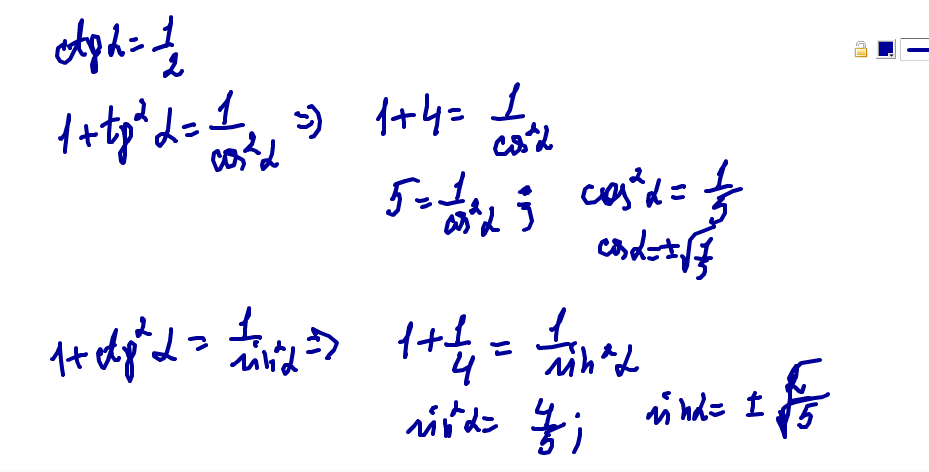 ctg α = 1/2
1 + tg² α = 1/cos² α ⇒ 1 + 4 = 1/cos² α
5 = 1/cos² α ; cos² α = 1/5
cos α = ±√(1/5)
1 + ctg² α = 1/sin² α ⇒ 1 + 1/4 = 1/sin² α
sin² α = 4/5 ; sin α = ± 2/√5